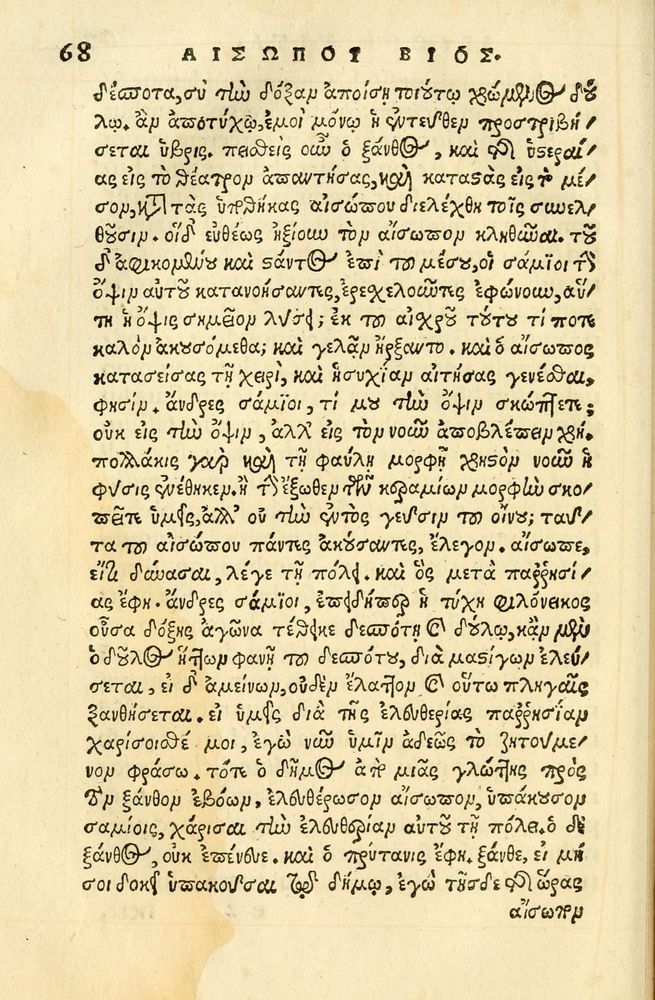 68 ΑΙΣΩΠΟΥ ΒΙΟΣ.
δέσποτα, σὺ τὴν δόξαν ἀποίσῃ τοιούτῳ χρώμενος δού/
λῳ. ἂν ἀποτύχω, ἐμοὶ μόνῳ ἡ ἐντεῦθεν προστριβή/
σεται ὕβρις. πεισθεὶς οὖν ὁ ξάνθος, καὶ τῇ ὑστεραί/
ας εἰς τὸ θέατρον ἀπαντήσας, καὶ καταστὰς εἰς τὸ μέ/
σον, κατὰ τὰς ὑποθήκας αἰσώπου διελέχθη τοῖς συνελ/
θοῦσιν. οἱ δ' εὐθέως ἠξίουν τὸν αἴσωπον κληθῆναι. τοῦ
δ' ἀφικομένου καὶ στάντος ἐπὶ τοῦ μέσου, οἱ σάμιοι τὴν
ὄψιν αὐτοῦ κατανοήσαντες, ἐρεχελοῦντες ἐφώνουν, αὕ/
τη ἡ ὄψις σημεῖον λύσει; ἐκ τοῦ αἰχροῦ τούτου τί ποτε
καλὸν ἀκουσόμεθα; καὶ γελᾶν ἤρξαντο. καὶ ὁ αἴσωπος
κατασείσας τῇ χειρὶ, καὶ ἡσυχίαν αἰτήσας γενέσθαι,
φησίν. ἄνδρες σάμιοι, τί μου τὴν ὄψιν σκώπτετε;
οὐκ εἰς τὴν ὄψιν, ἀλλ' εἰς τὸν νοῦν ἀποβλέπειν χρή.
πολλάκις γὰρ καὶ τῇ φαύλῃ μορφῇ χρηστὸν νοῦν ἡ
φύσις ἐνέθηκεν. ἢ τὴν ἔξωθεν τῶν κεραμίων μορφὴν σκο/
πεῖτε ὑμεῖς, ἀλλ' οὐ τὴν ἐντὸς γεῦσιν τοῦ οἴνου; ταῦ/
τα τοῦ αἰσώπου πάντες ἀκούσαντες, ἔλεγον. αἴσωπε,
εἴ τι δύνασαι, λέγε τῇ πόλει. καὶ ὃς μετὰ παῤῥησί/
ας ἔφη. ἄνδρες σάμιοι, ἐπειδήπερ ἡ τύχη φιλόνεικος
οὖσα δόξης ἀγῶνα τέθεικε δεσπότῃ καὶ δούλῳ, κἂν μὲν
ὁ δοῦλος ἥττων φανῇ τοῦ δεσπότου, διὰ μαστίγων ἐλεύ/
σεται, εἰ δ' ἀμείνων, οὐδὲν ἔλαττον καὶ οὕτω πληγαῖς
ξανθήσεται. εἰ ὑμεῖς διὰ τῆς ἐλευθερίας παῤῥησίαν
χαρίσοισθέ μοι, ἐγὼ νῦν ὑμῖν ἀδεῶς τὸ ζητούμε/
νον φράσω. τότε ὁ δῆμος ἀπὸ μιᾶς γλώττης πρὸς
τὸν ξάνθον ἐβόων, ἐλευθέρωσον αἴσωπον, ὑπάκουσον
σαμίοις, χάρισαι τὴν ἐλευθερίαν αὐτοῦ τῇ πόλει. ὁ δὲ
ξάνθος, οὐκ ἐπένευε. καὶ ὁ πρύτανις ἔφη. ξάνθε, εἰ μή
σοι δοκεῖ ὑπακοῦσαι τῷ δήμῳ, ἐγὼ τῆσδε τῆς ὥρας
αἴσωπον